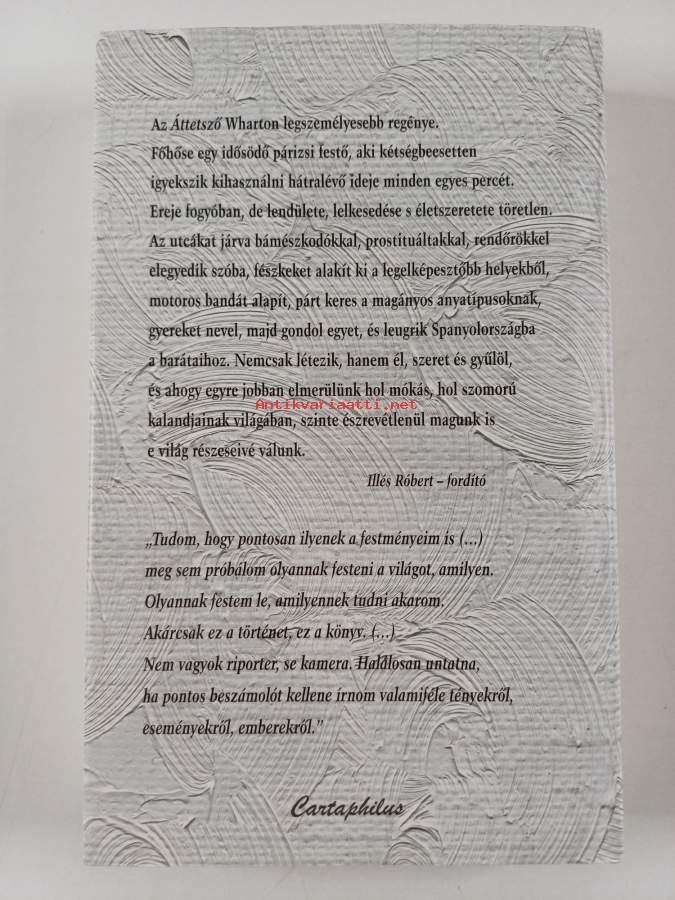 Az Áttetsző Wharton legszemélyesebb regénye.
Főhőse egy idősödő párizsi festő, aki kétségbeesetten
igyekszik kihasználni hátralévő ideje minden egyes percét.
Ereje fogyóban, de lendülete, lelkesedése s életszeretete töretlen.
Az utcákat járva bámészkodókkal, prostituáltakkal, rendőrökkel
elegyedik szóba, fészkeket alakít ki a legelképesztőbb helyekből,
motoros bandát alapít, párt keres a magányos anyatípusoknak,
gyereket nevel, majd gondol egyet, és leugrik Spanyolországba
a barátaihoz. Nemcsak létezik, hanem él, szeret és gyűlöl,
és ahogy egyre jobban elmerülünk hol mókás, hol szomorú
Antikvariaatti.net
kalandjainak világában, szinte észrevétlenül magunk is
e világ részeseivé válunk.
Illés Róbert – fordító
„Tudom, hogy pontosan ilyenek a festményeim is (…)
meg sem próbálom olyannak festeni a világot, amilyen.
Olyannak festem le, amilyennek tudni akarom.
Akárcsak ez a történet, ez a könyv. (…)
Nem vagyok riporter, se kamera. Halálosan untatna,
ha pontos beszámolót kellene írnom valamiféle tényekről,
eseményekről, emberekről.”
Cartaphilus